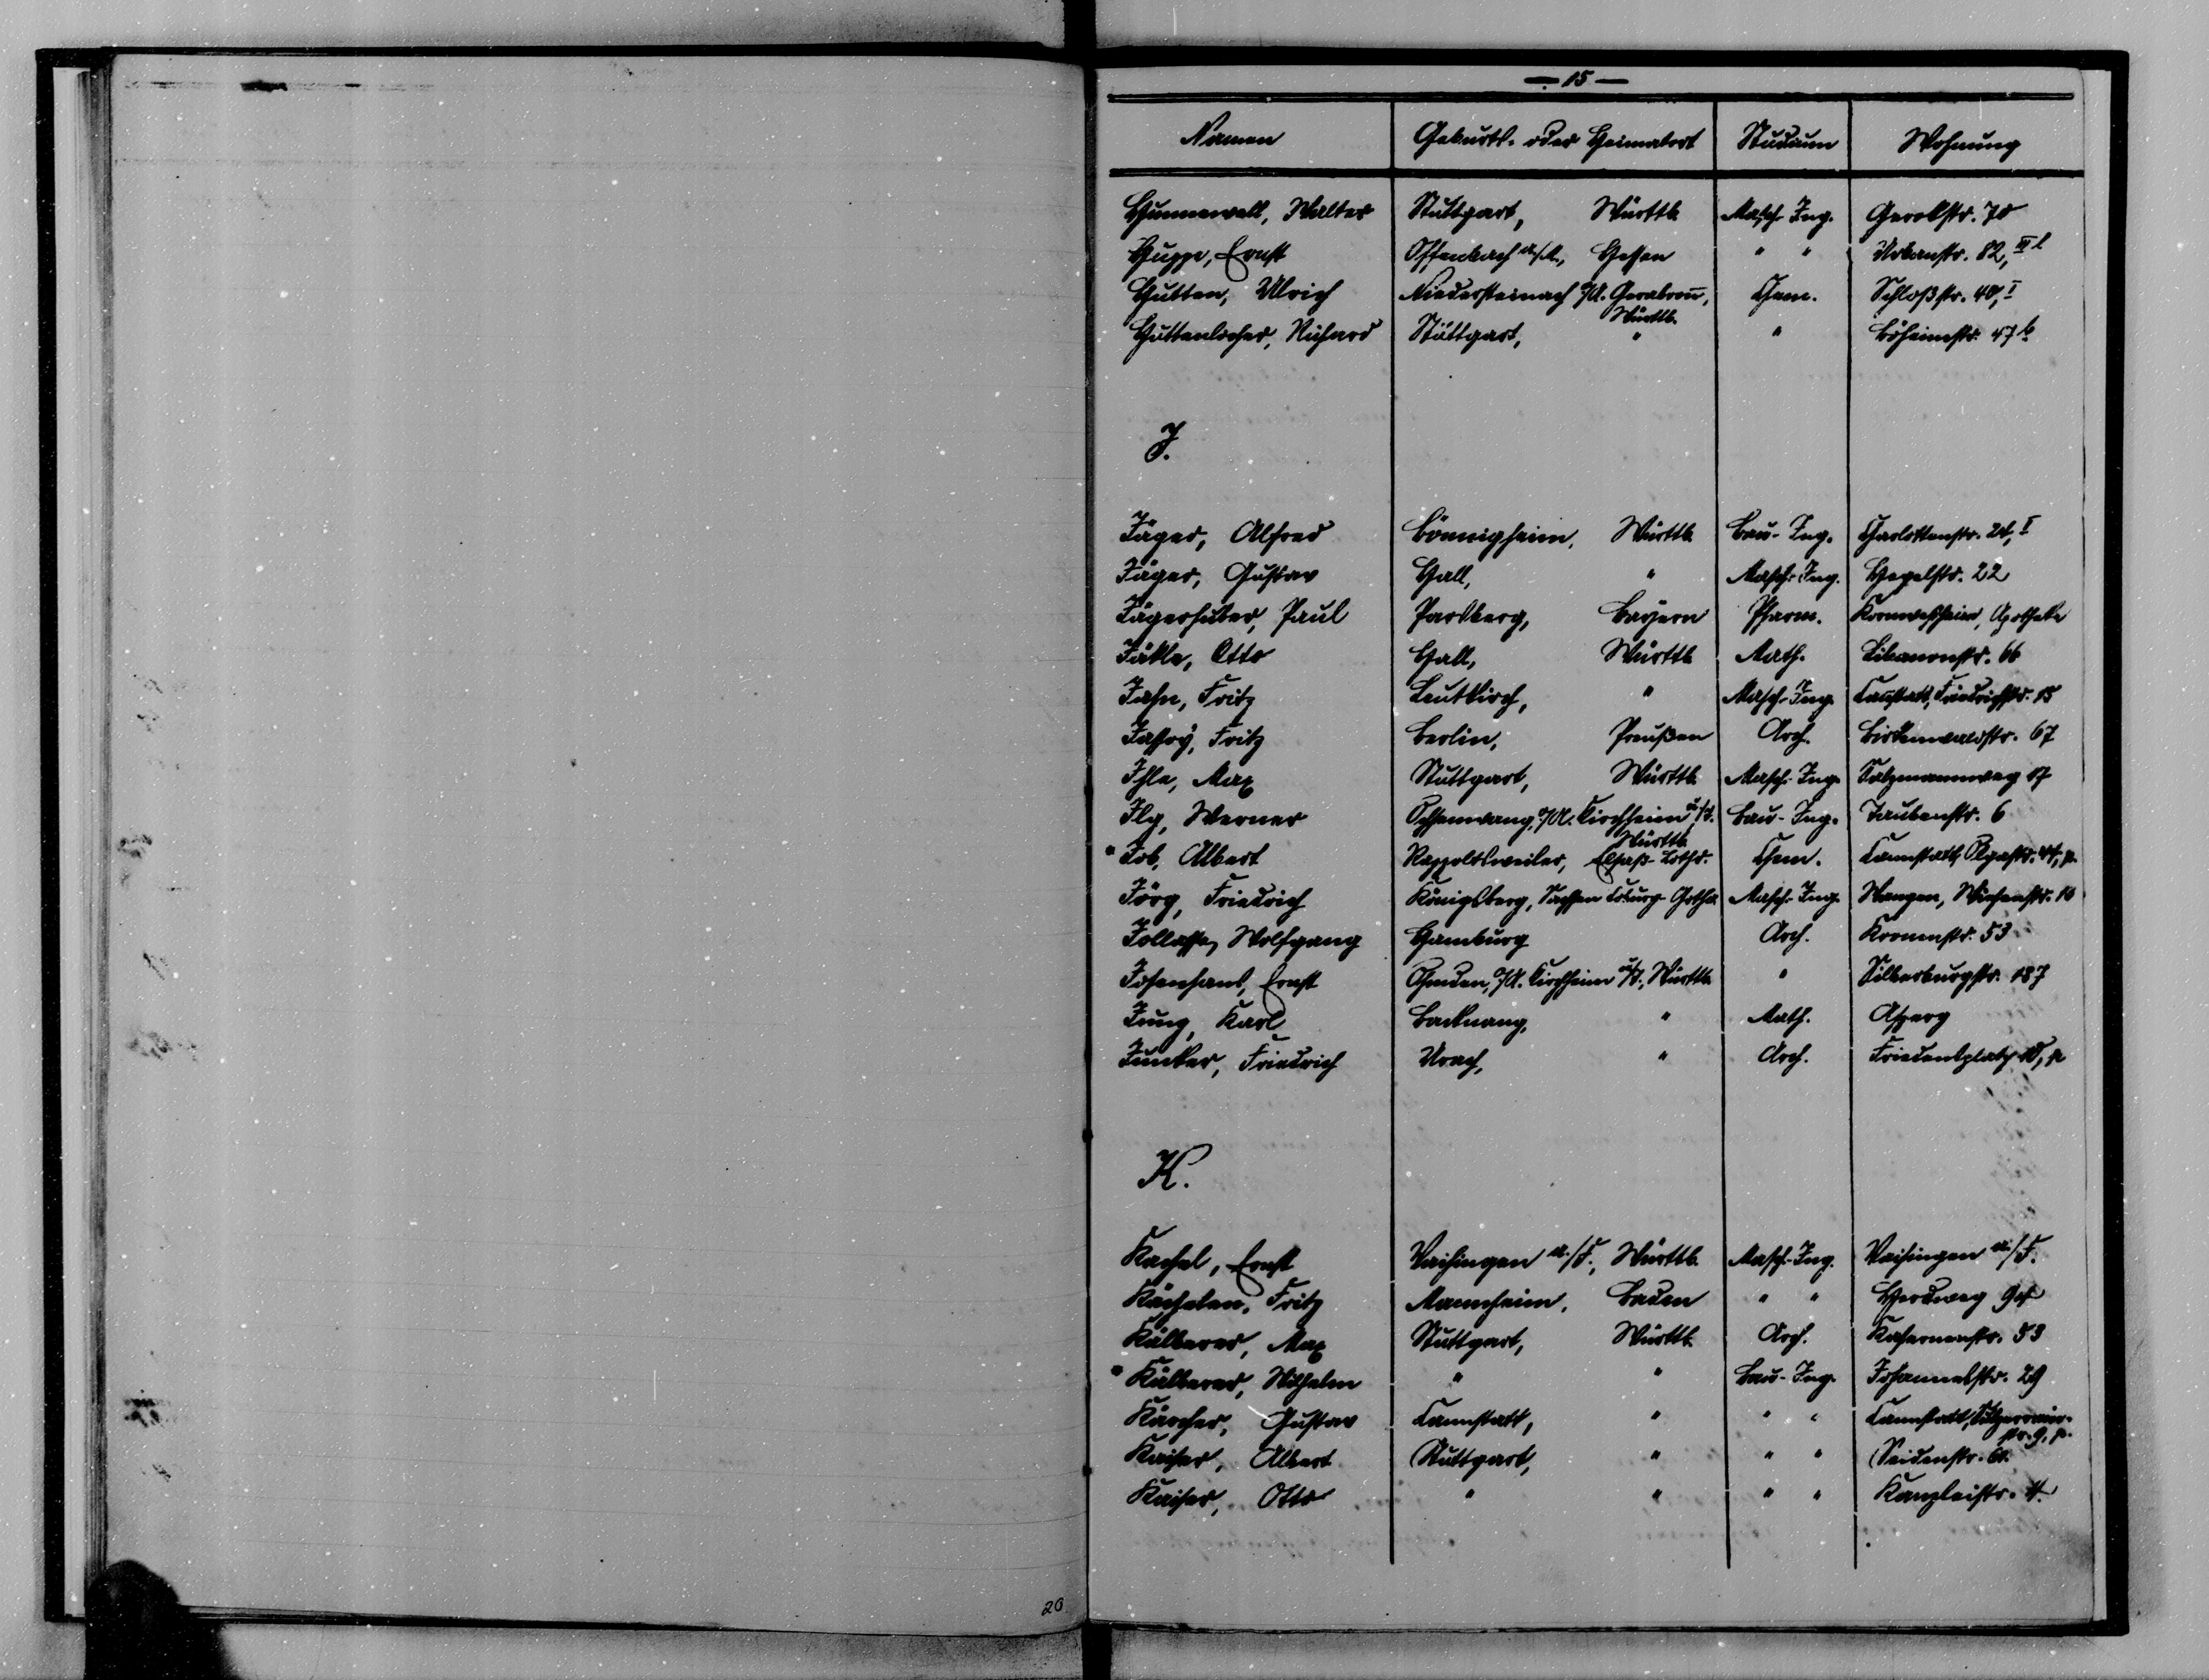 — 15 —
Namen Geburts- oder Heimatort Studium Wohnung
Hummewell, Walter Stuttgart, Württb. Masch. Ing. Gerokstr. 70
Huppe, Ernst Offenbach a/M., Hessen " " Urbanstr. 82, III l
Hutten, Ulrich Niedersteinach O/A. Gerabron̄, Chem. Schloßstr. 40, I
Württb.
Huttenlocher, Richard Stuttgart, " " Böheimstr. 47 b
J.
Jäger, Alfred Bönnigheim, Württb. Bau-Ing. Charlottenstr. 24, I
Jäger, Gustav Hall, " Masch-Ing. Hegelstr. 22
Jägerhuber, Paul Parsberg, Bayern Pharm. Kornwestheim, Apotheke
Jäkle, Otto Hall, Württb. Math. Libanonstr. 66
Jahn, Fritz Leutkirch, " Masch-Ing. Canstatt, Friedrichstr. 15
Jassoy, Fritz Berlin, Preußen Arch. Birkenwaldstr. 67
Ihle, Max Stuttgart, Württb. Masch-Ing. Salzmannweg 17
Ilg, Werner Ochsenwang, O/A. Kirchheim u/T. Bau-Ing. Taubenstr. 6
Württb.
* Job, Albert Rappoltsweiler, Elsaß-Lothr. Chem. Cannstatt, Olgastr. 44, p.
Jörg, Friedrich Königsberg, Sachsen Coburg-Gotha Masch-Ing. Wangen, 10
Jollasse, Wolfgang Hamburg Arch. Kronenstr. 53
Josenhans, Ernst Ohmden, O/A. Kirchheim u/T., Württb. " Silberburgstr. 187
Jung, Karl Backnang, " Math. Asperg
Junker, Friedrich Urach, " Arch. Friedensplatz 10, p
K.
Kachel, Ernst Vaihingen a./F., Württb. Masch-Ing. Vaihingen a./F.
Kächelen, Fritz Mannheim, Baden " " Herdweg
Kälberer, Max Stuttgart, Württb. Arch. Kasernenstr. 53
* Kälberer, Wilhelm " " Bau-Ing. Johannesstr. 29
Kärcher, Gustav Cannstatt, " " " Cannstatt, Sulzerrain-
str. 9, p.
Kaiser, Albert Stuttgart, " " " Seidenstr. 61.
Kaiser, Otto " " " " Kanzleistr. 4.
20